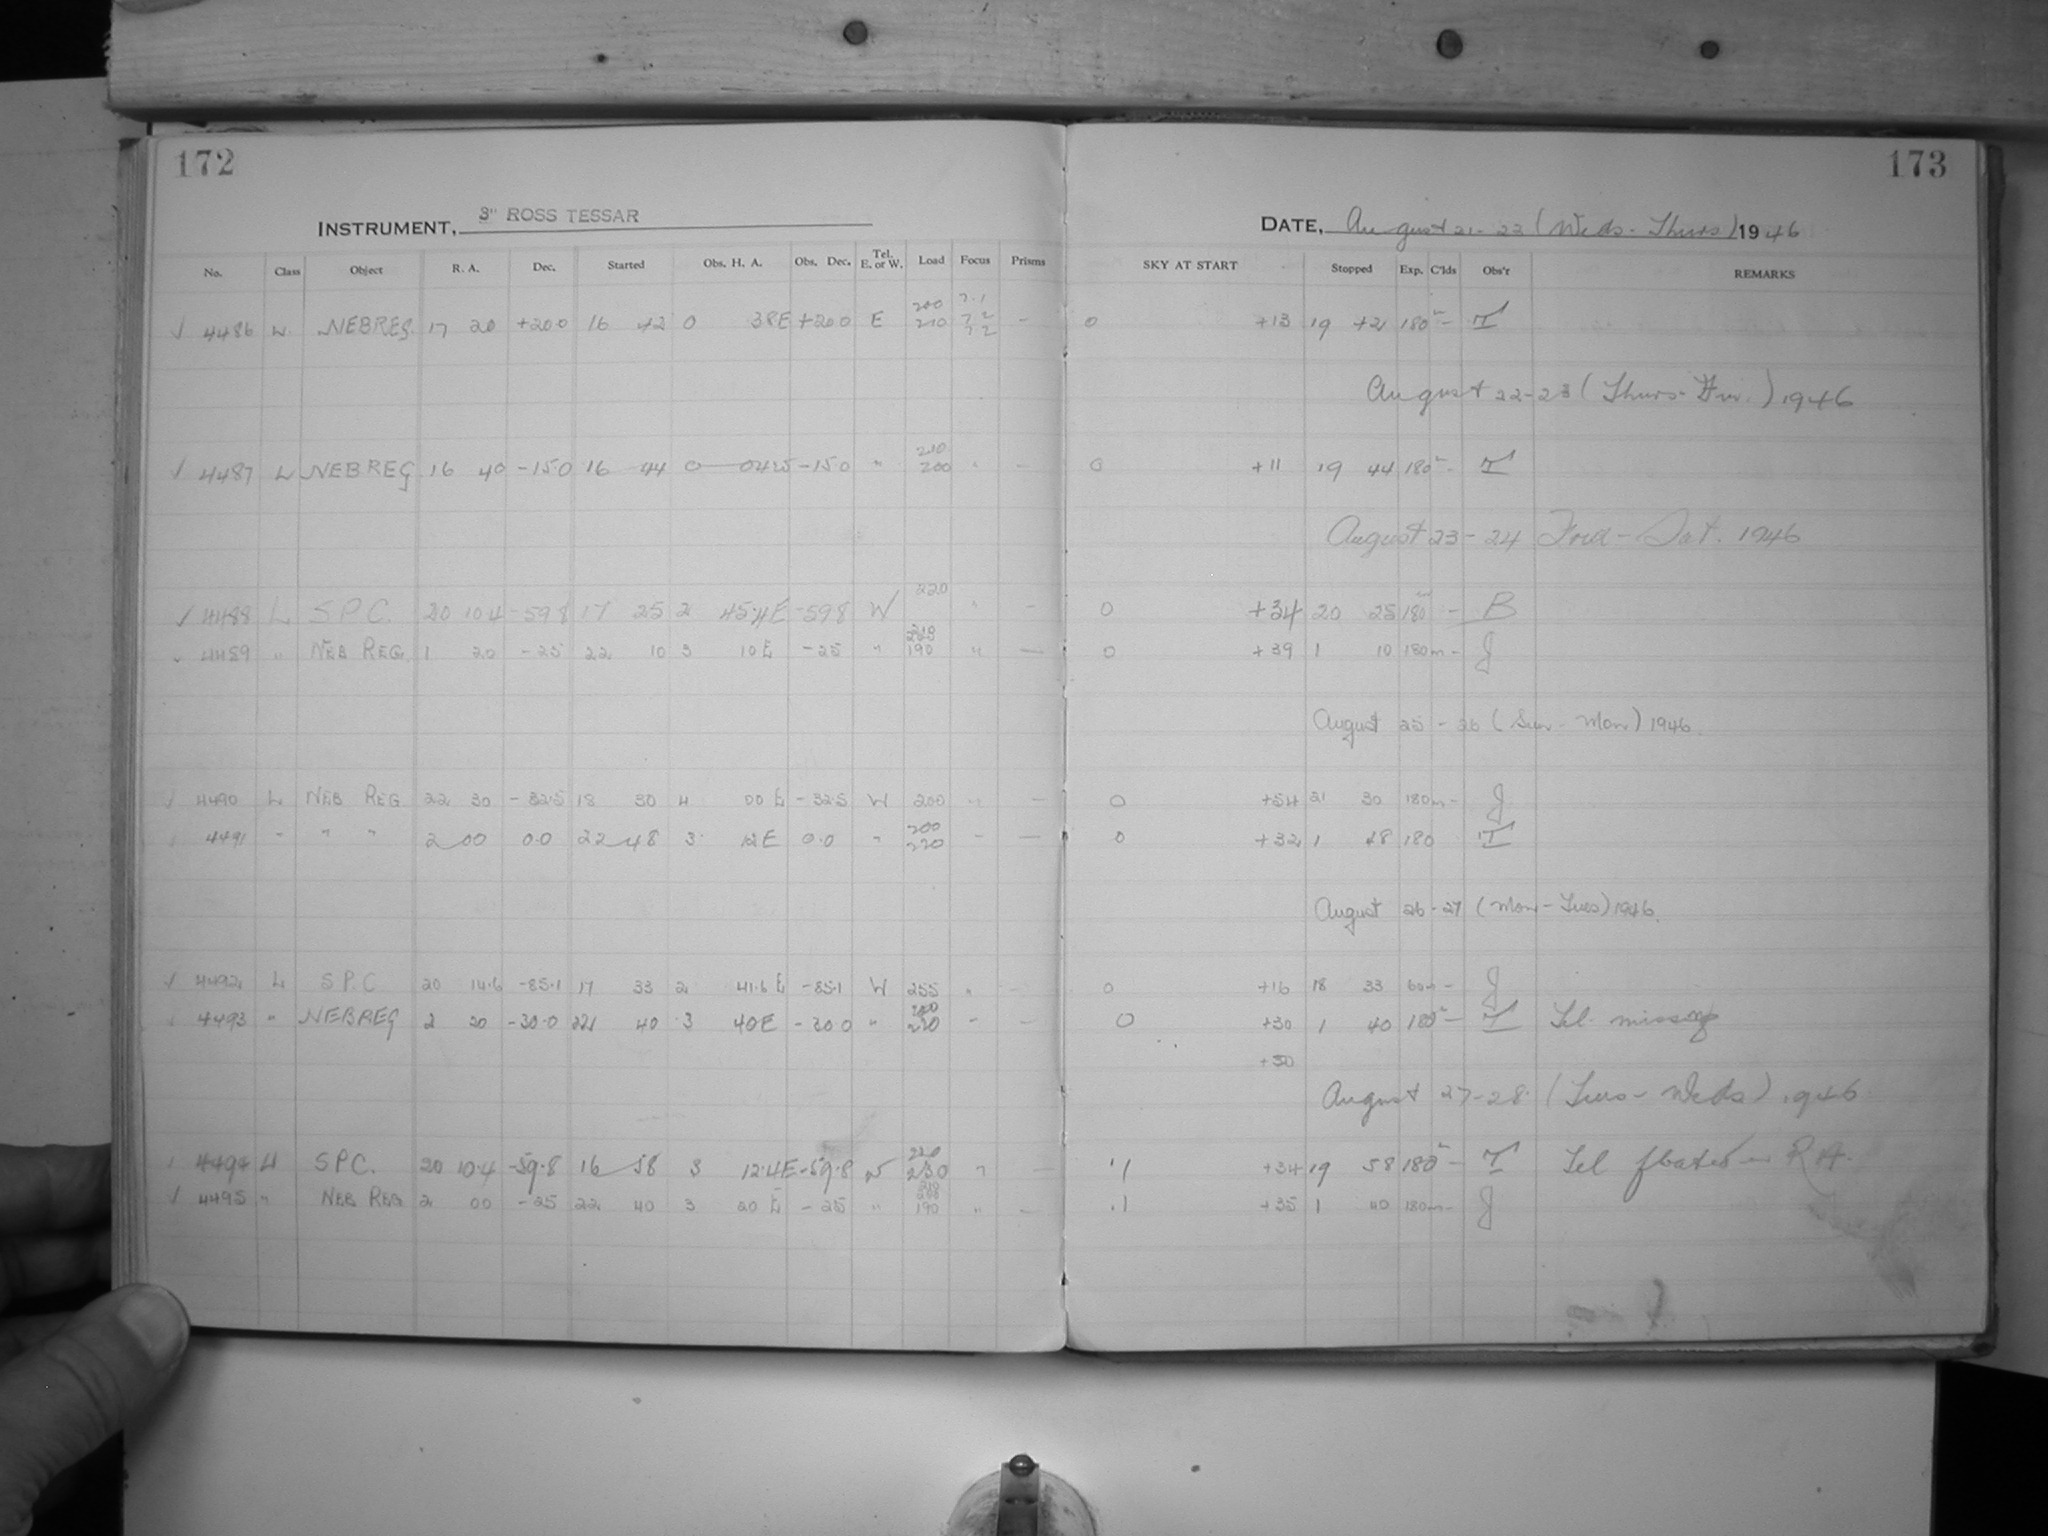 172 173
INSTRUMENT, 3" ROSS TESSAR DATE, August 21-22 (Weds-Thurs) 1946
No. Class Object R. A. Dec. Started Obs. H. A. Obs. Dec. Tel. E. or W. Load Focus Prisms SKY AT START Stopped Exp. C'lds Obs'r REMARKS
200 7.1
√ 4486 L NEBREG. 17 20 +20.0 16 42 0 38E +20.0 E 210 7.2 - 0 +13 19 42 180m - T
7.2
August 22-23 (Thurs-Fri.) 1946
210
√ 4487 L NEBREG 16 40 -15.0 16 44 0 04.5 -15.0 " 200 " - 0 +11 19 44 180m - T
August 23-24 Frid-Sat. 1946
220
√ 4488 L S.P.C. 20 10.4 -59.8 17 25 2 45.4E -59.8 W " - 0 +34 20 25 180m - B
4489 " NEB REG. 1 20 -25 22 10 3 10E -25 " 190 " - 0 +39 1 10 180m - J
August 25-26 (Sun-Mon) 1946.
√ 4490 L NEB REG 22 30 -32.5 18 30 4 00E -32.5 W 200 " - 0 +54 21 30 180m - J
200
4491 " " " 2 00 0.0 22 48 3 12E 0.0 " 220 - - 0 +32 1 48 180 T
August 26-27 (Mon-Tues) 1946.
√ 4492 L S.P.C 20 14.6 -85.1 17 33 2 41.6E -85.1 W 255 " - 0 +16 18 33 60m - J
4493 " NEBREG 2 20 -30.0 22 40 3 40E -30.0 " 220 - - 0 +30 1 40 180m - T Tel. missing
+30
August 27-28. (Tues-Weds) 1946
4494 L S.P.C. 20 10.4 -59.8 16 58 3 12.4E -59.8 W 230 " - .1 +34 19 58 180m - T Tel floated in R.A.
210
√ 4495 " NEB REG 2 00 -25 22 40 3 20E -25 " 190 " - .1 +35 1 40 180m - J